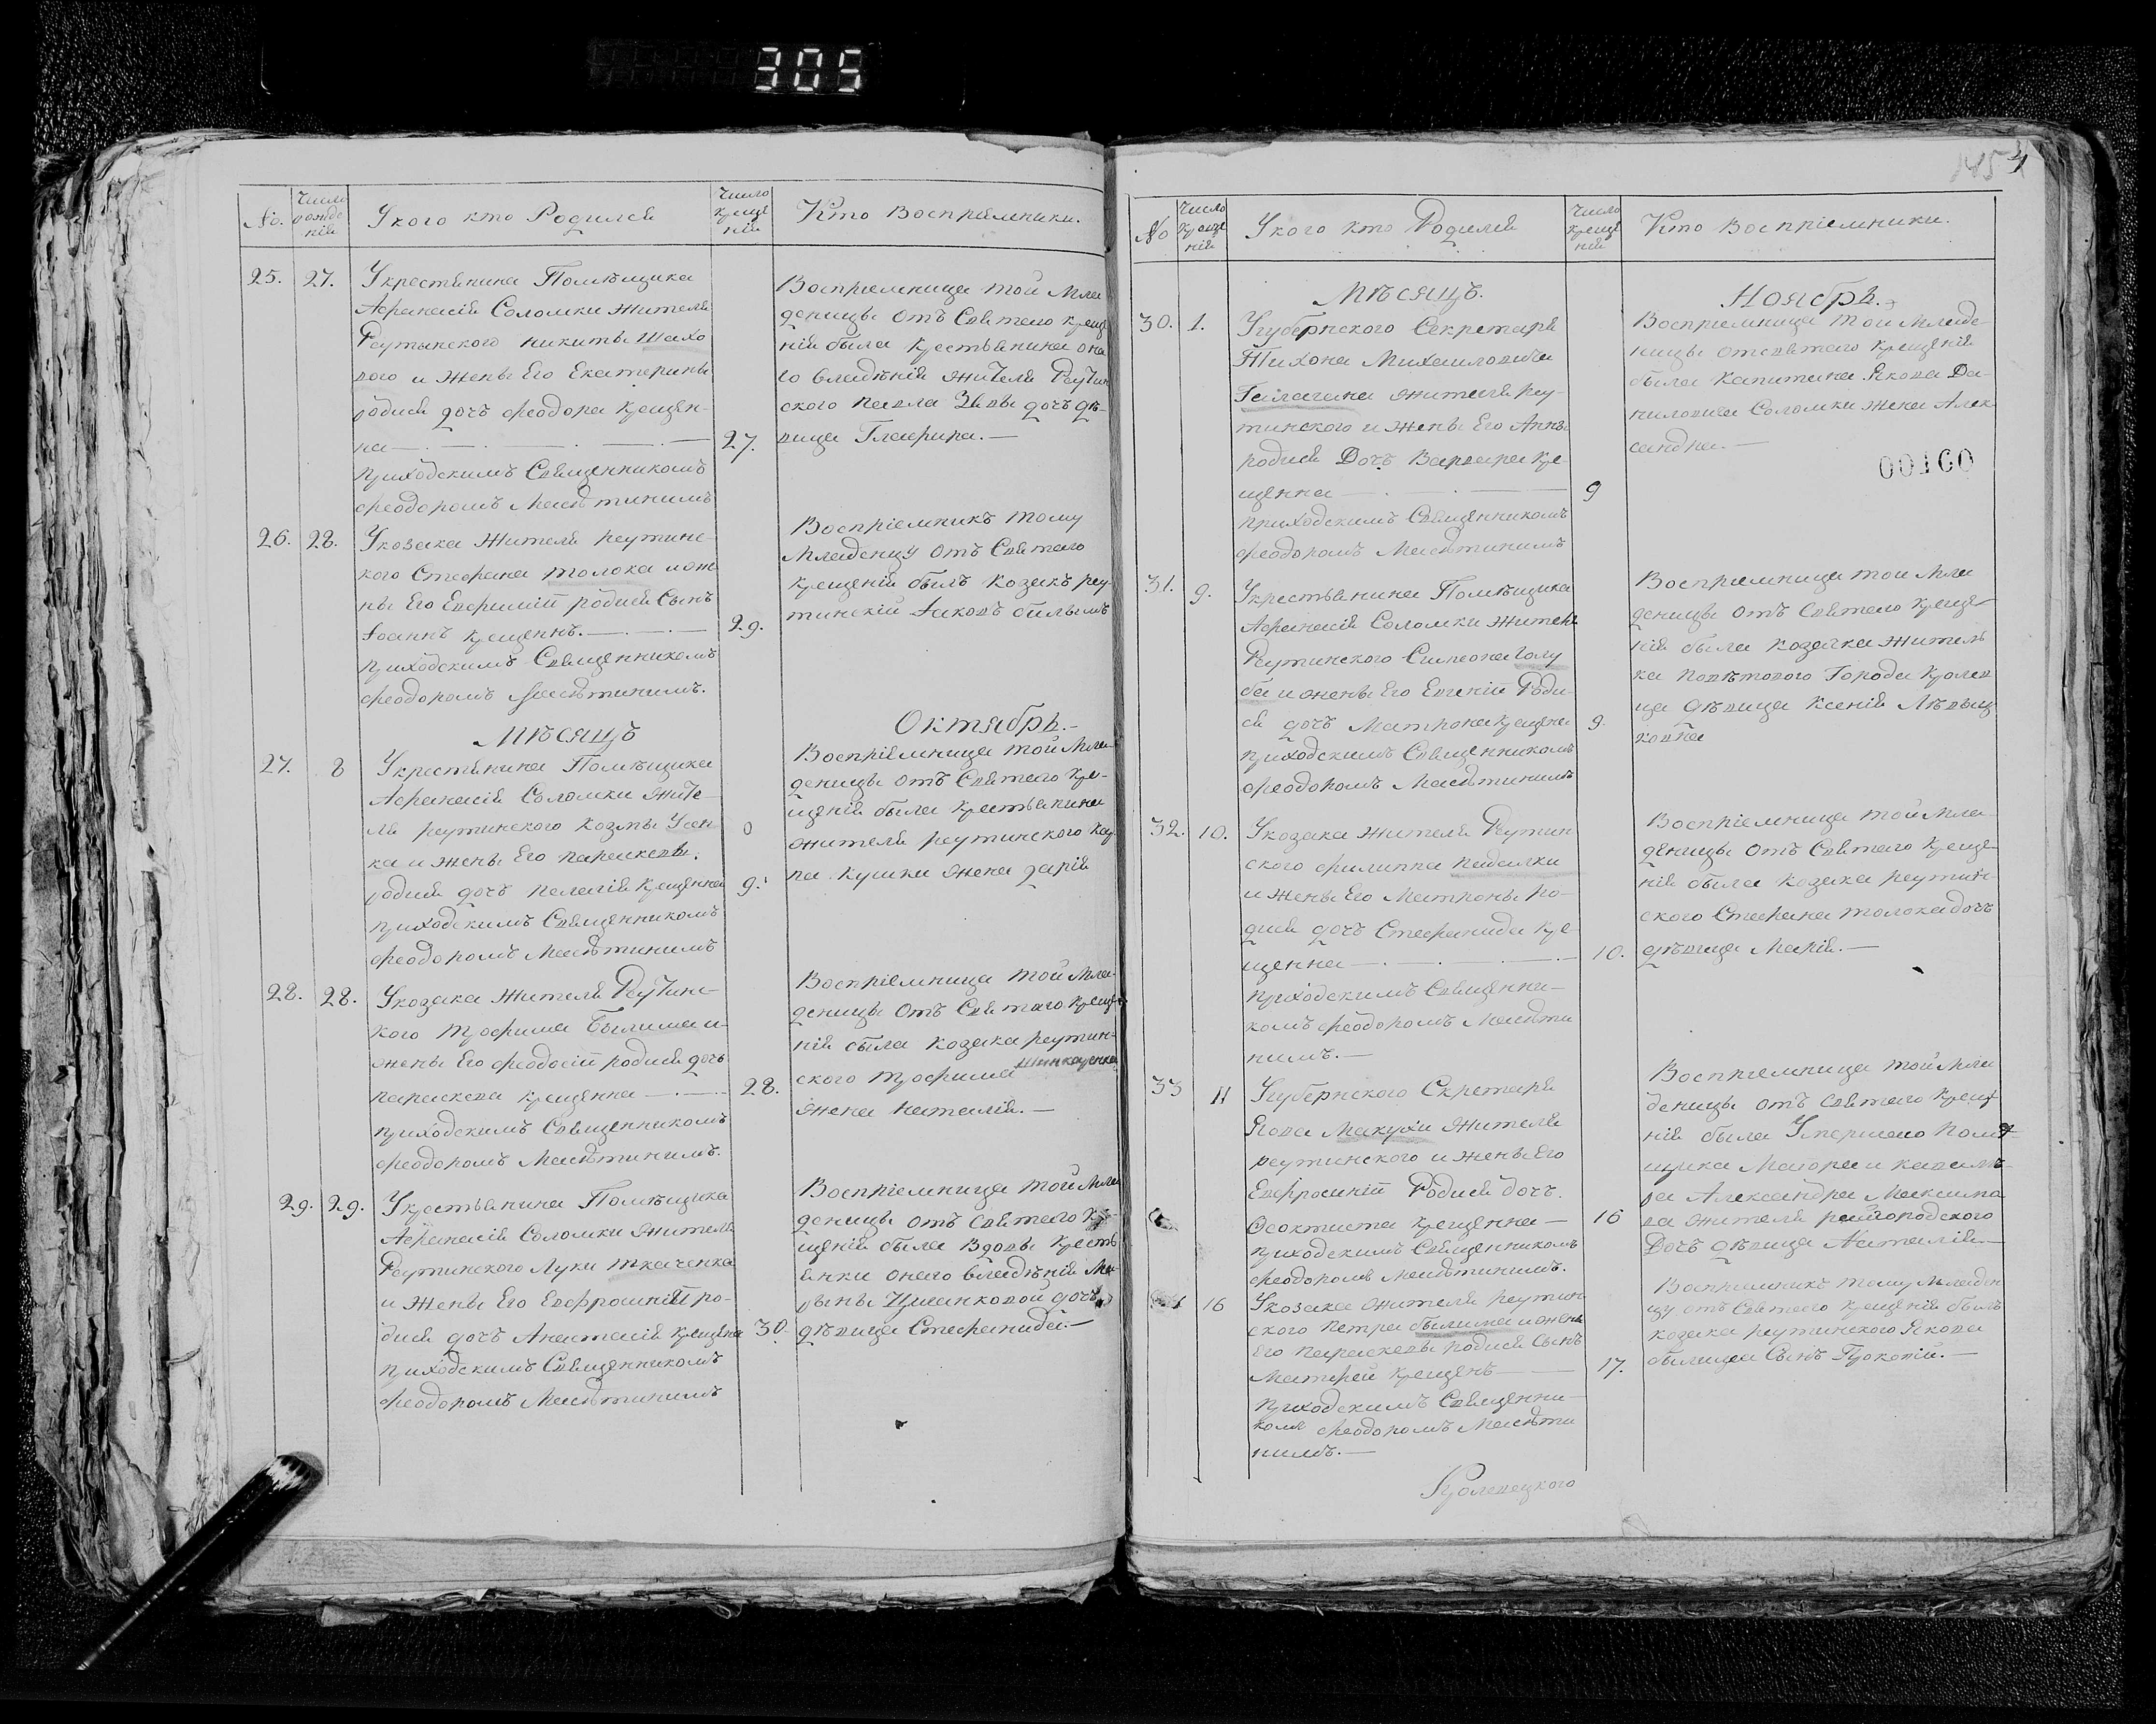 305
No.
Число рожде нія
У кого кто Родился
Число крещенія
Кто Воспріемники.
25. 27.
Укрестянина Помѣщика
Афанасія Соломки жителя
Реутынского никиты Шахо
вого и жены Его Екатерины
родися дочъ феодора крещен-
на
27.
приходскимъ Священникомъ
феодоромъ
Воспріемница той Мла
деницы отъ Святаго крещ
нія была крестьянина она
го владѣнія жителя Реутин
ского павла дочъ дѣ-
вица Глафира.
26. 28.
Укозака жителя реутинс-
кого Стефана толока и же
ны Его Евфиміи родися Сынъ
Іоаннъ крещеннъ.
29.
приходскимъ Священникомъ
феодоромъ
Воспріемникъ тому
Младенцу отъ Святаго
крещенія былъ козакъ реу
тинскій Іаковъ
Мѣсяцъ
Октябрь.
27. 8
Укрестянина Помѣщика
Афанасія Соломки жите-
ля реутинского козмы Усен
ка и жены Его параскевы.
родися дочъ пелагія крещенна
9.
приходскимъ Священникомъ
феодоромъ
Воспріемница той Мла-
деницы отъ Святаго кре-
щенія была крестьянина
жителя реутинского кар
па кушки жена дарія
28. 28.
Укозака жителя Реутинс-
кого трофима Былима и
жены Его феодосіи родися дочъ
параскева крещенна
28.
приходскимъ Священникомъ
феодоромъ
Воспріемница той Мла-
деницы отъ Святаго креще
нія была козака реутин-
ского трофима шинкаренка
жена наталія.
29. 29.
Укрестьянина Помѣщика
Афанасія Соломки жителя
Реутинского Луки ткаченка
и жены Его Евфросиніи ро-
дися дочъ Анастасія крещена
30.
приходскимъ Священникомъ
феодоромъ
Воспріемница той Мла
деницы отъ святаго кр
щенія была вдовы кресть
янки онаго владѣнія Ма-
рыны Цыганковой дочъ
дѣвица Стефанида.
No
Число крещенія
У кого кто Родился
Число крещенія
Кто Воспріемники.
Мѣсяцъ.
Ноябрь.
30. 1.
Угубернского Секретаря
Тихона Михаиловича
жителя реу-
тинского и жены Его Анны
родися Дочъ Варвара кре
щенна
9
приходскимъ Священникомъ
феодоромъ
Воспріемница той Младе-
ницы отсвятаго крещенія
была капитана Якова Да-
ниловича Соломки жена Алек
сандра.
00160
31. 9.
Укрестьянина Помѣщика
Афанасія Соломки жителя
Реутинского Симеона Голу
ба и жены Его Евгеніи Роди
ся дочъ Матрона крещена
9.
приходскимъ Священникомъ
феодоромъ
Воспріемница той Мла
деницы отъ Святаго креще
нія была козачка житель
ка повѣтового Города кролев
ца дѣвица ксенія
32. 10.
Укозака жителя Реутин
ского филиппа
и жены Его Матроны ро-
дися дочъ Стефанида кре-
щенна
10.
приходскимъ Священни-
комъ феодоромъ
Воспріемница той Мла-
деницы отъ Святаго креще-
нія была козака реутин-
ского Стефана толока дочъ
дѣвица Марія.
33 11
Угубернского Скретаря
Якова Макухи жителя
реутинского и жены Его
Евфросиніи Родися дочъ.
Феоктиста крещенна
16
приходскимъ Священникомъ
феодоромъ
Воспріемница той Мла
деницы отъ святаго крещ
нія была Умершаго помѣ
щика Маіора и кавале-
ра Александра Максимо
ва жителя райгородского
Дочъ дѣвица Наталія
16
Укозака жителя реутин
ского петра былима и жены
Его параскевы родися Сынъ
Матфей крещенъ
17.
приходскимъ Священни-
комъ феодоромъ
Воспріемникъ тому младен
цу отъ Святаго крещенія былъ
козака реутинского Якова
былима Сынъ Прокопій.
Кролевецкого